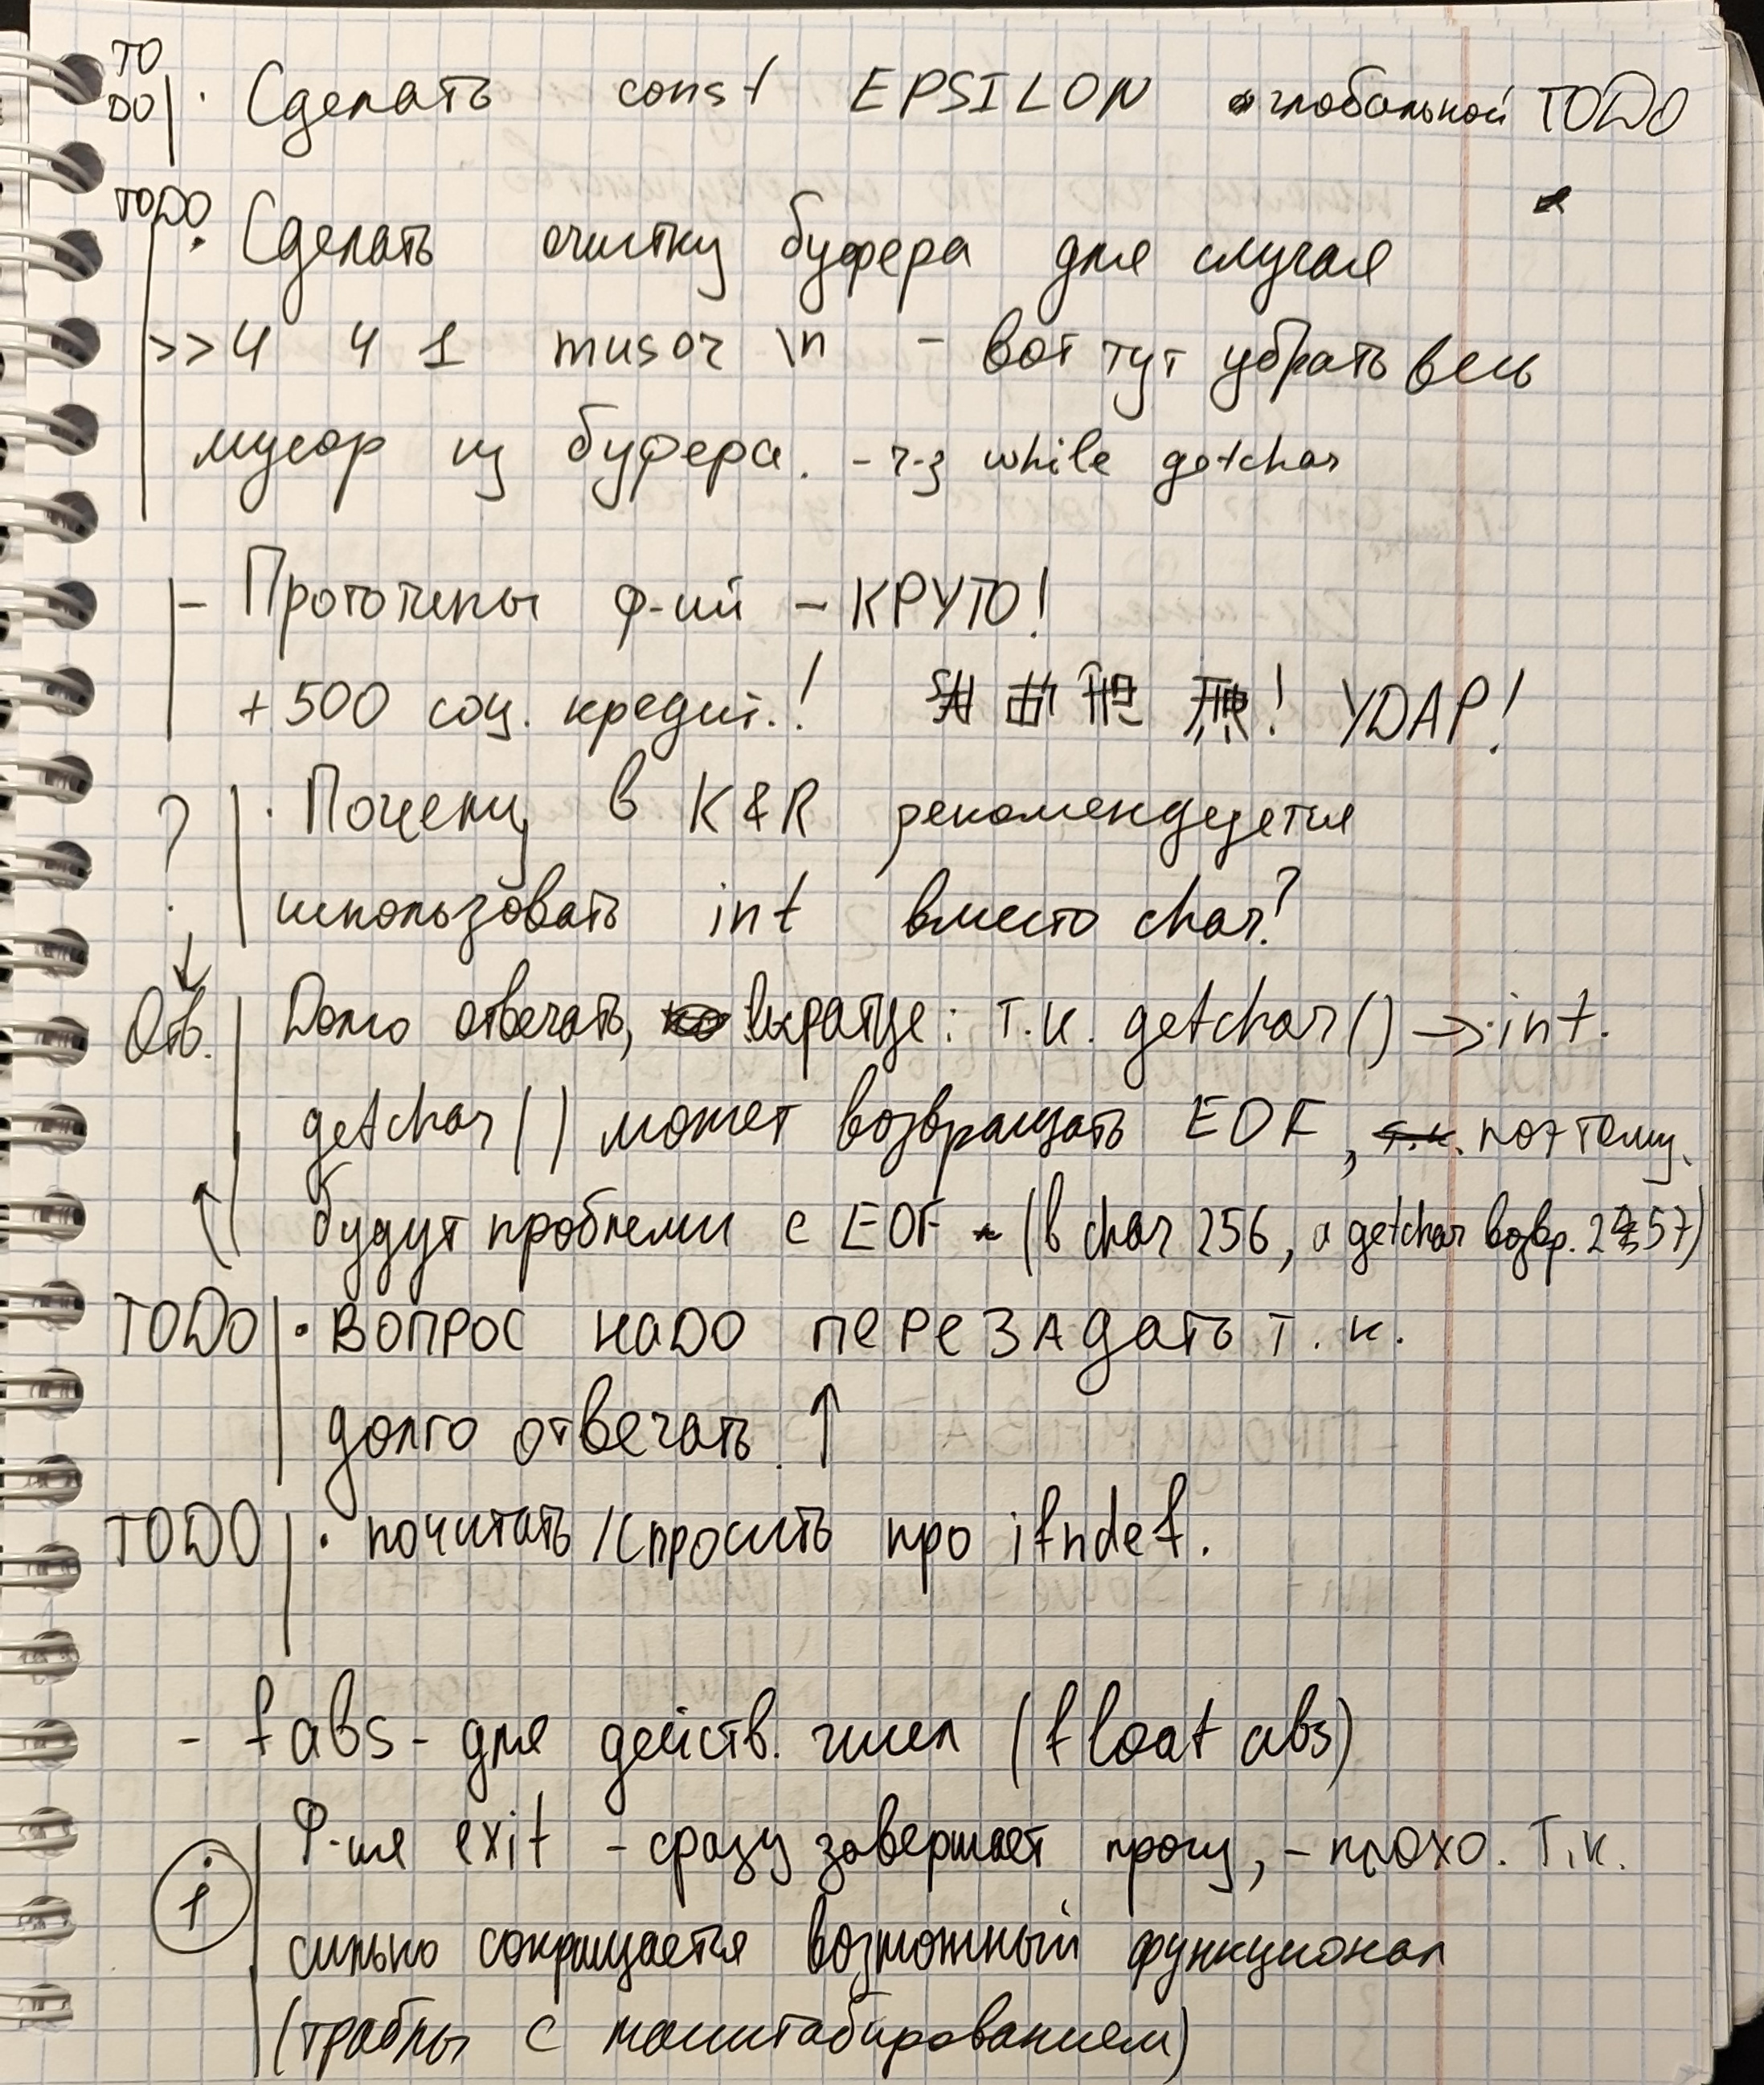 TO
DO · Сделать const EPSILON глобальной TODO
TODO · Сделать очистку буфера для случая
>>4 4 1 musor \n - вот тут убрать весь
мусор из буфера. - ч-з while getchar
- Прототипы ф-ий - КРУТО!
+500 соц. кредит.! ! УДАР!
? · Почему в K&R рекомендуется
использовать int вместо char?
Отв. Долго отвечать, вкратце: т.к. getchar() -> int.
getchar() может возвращать EOF, т.к. поэтому
будут проблемы с EOF (в char 256, а getchar возвр. 257)
TODO · ВОПРОС НАДО ПЕРЕЗАДАТЬ т.к.
долго отвечать ↑
TODO · почитать/спросить про ifndef.
- fabs - для действ. чисел (float abs)
i Ф-ия exit - сразу завершает прогу, - плохо. Т.к.
сильно сокращается возможный функционал
(траблы с масштабированием)